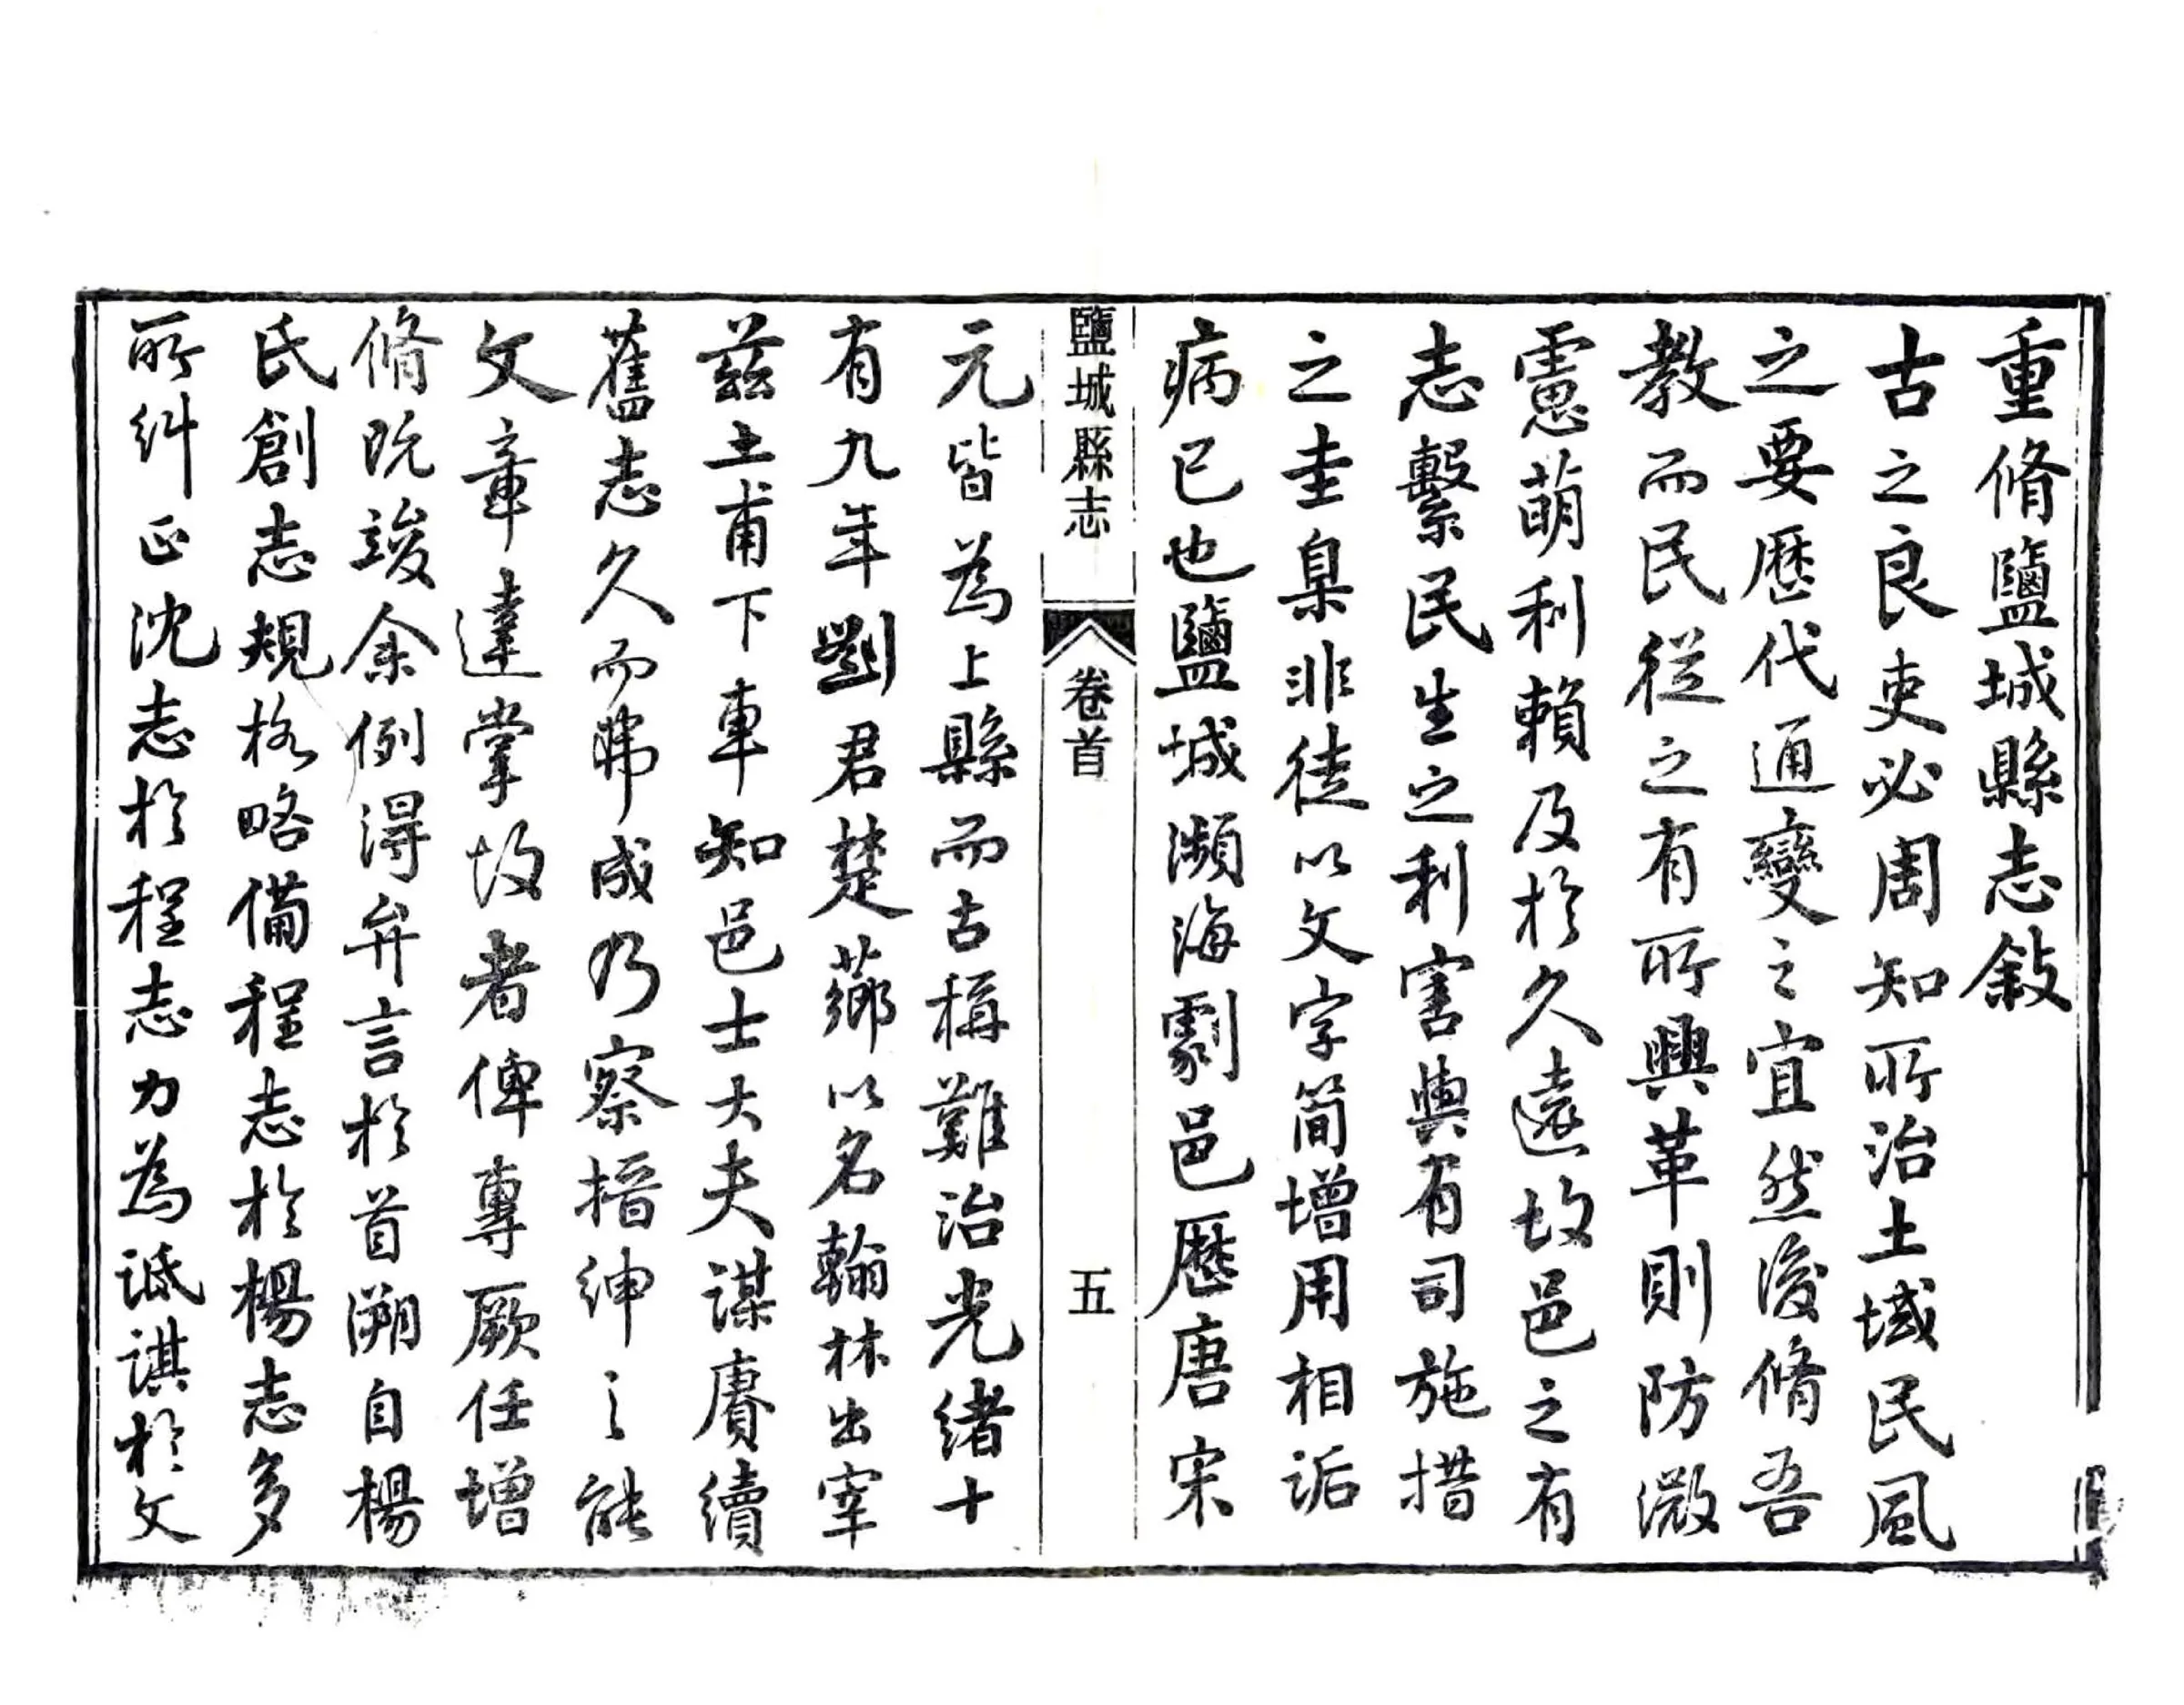 重脩鹽城縣志敘
古之良吏必周知所治土域民風
之要歷代通變之宜然後脩吾
教而民從之有所興革則防微
慮萌利賴及於久遠故邑之有
志繫民生之利害與有司施措
之圭臬非徒以文字簡增用相詬
病已也鹽城瀕海劇邑歷唐宋
鹽城縣志
卷首
五
元皆為上縣而古稱難治光緒十
有九年劉君楚薌以名翰林出宰
茲土甫下車知邑士大夫謀賡續
舊志久而弗成乃察搢紳之能
文章達掌故者俾專厥任增
脩既竣余例得弁言於首溯自楊
氏創志規格略備程志於楊志多
所糾正沈志於程志力為詆諆於文